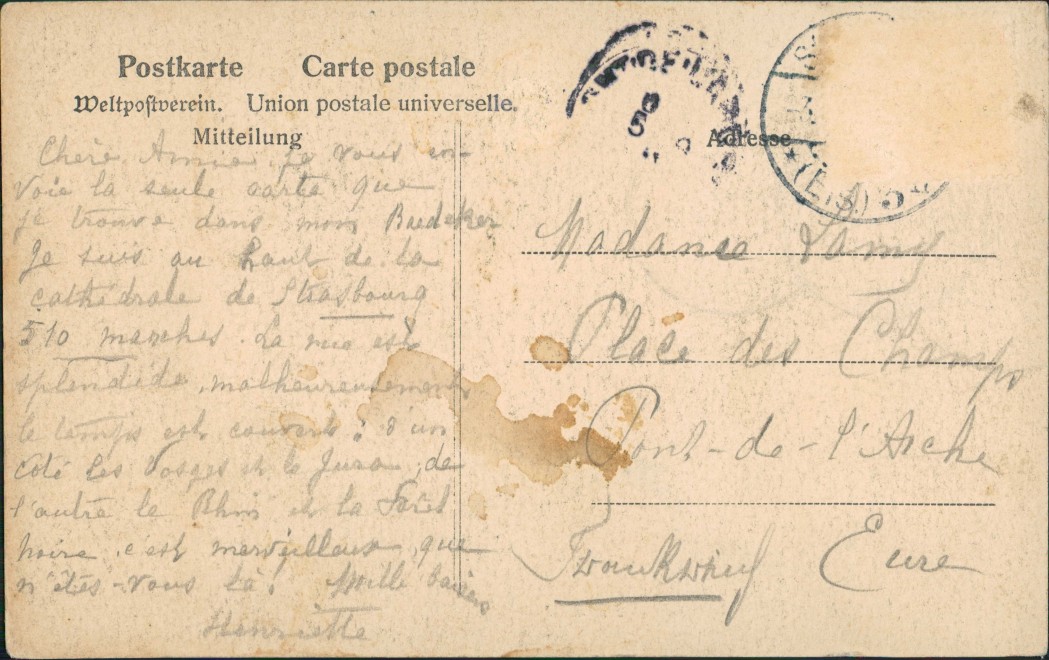 Postkarte Carte postale
Weltpostverein. Union postale universelle.
Mitteilung
Adresse
Chère Amie, je vous en-
voie la seule carte que
je trouve dans mon Baedeker
Je suis au haut de la
cathédrale de Strasbourg
510 marches. La vue est
splendide, malheureusement
le temps est couvert : d'un
côté les Vosges et le Jura, de
l'autre le Rhin et la Forêt
noire. c'est merveilleux, que
n'êtes-vous là! Mille baisers
Henriette
Madame Lamy
Place des Champs
Pont-de-l'Arche
Eure
Frankreich
(ELS.)